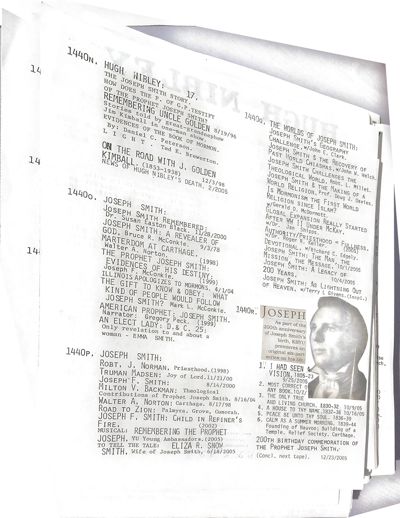 1440N. HUGH NIBLEY: 17.
THE JOSEPH SMITH STORY.
HOW DOES THE P. OF G.P. TESTIFY
OF THE PROPHET JOSEPH SMITH?
REMEMBERING UNCLE GOLDEN 8/19/96
Stories told by great-grandnephew
Jim Kimball in one-man show.
EVIDENCES OF THE BOOK OF MORMON.
By: Daniel C. Peterson,
L I G H T. Ted E. Brewerton.
ON THE ROAD WITH J. GOLDEN
KIMBALL. (1853-1938) 12/3/98
NEWS OF HUGH NIBLEY'S DEATH. 2/2005
1440o. JOSEPH SMITH:
JOSEPH SMITH REMEMBERED:
Dr. Susan Easton Black. 11/28/2000
JOSEPH SMITH: A REVEALER OF
GOD. Bruce R. McConkie. 9/3/78
MARTERDOM AT CARTHAGE.
Walter A. Norton. (1998)
THE PROPHET JOSEPH SMITH:
EVIDENCES OF HIS DESTINY:
Joseph F. McConkie. (1999)
ILLINOIS APOLOGIZES TO MORMONS. 4/1/04
THE GIFT TO KNOW & OBEY: WHAT
KIND OF PEOPLE WOULD FOLLOW
JOSEPH SMITH? Mark L. McConkie.
AMERICAN PROPHET: JOSEPH SMITH.
Narrator: Gregory Peck. (1999)
AN ELECT LADY: D.& C. 25:
Only revelation to and about a
woman - EMMA SMITH.
1440P. JOSEPH SMITH:
ROBT. J. NORMAN, Priesthood.(1998)
TRUMAN MADSEN: Joy of Lord.11/21/00
JOSEPH F. SMITH: 8/14/2000
MILTON V. BACKMAN: Theological
Contributions of Prophet Joseph Smith. 8/16/04
WALTER A. NORTON: Carthage. 8/17/98
ROAD TO ZION: Palmyra, Grove, Cumorah.
JOSEPH F. SMITH: CHILD IN REFINER'S
FIRE. (2002)
MUSICAL: REMEMBERING THE PROPHET
JOSEPH. YU Young Ambassadors.(2005)
TO TELL THE TALE: ELIZA R. SNOW
SMITH. Wife of Joseph Smith. 6/14/2005
144
144
144
1440o. THE WORLDS OF JOSEPH SMITH:
JOSEPH SMITH'S GEOGRAPHY
CHALLENGE. w/John E. Clark.
JOSEPH SMITH & THE RECOVERY OF
PAST WORLD CHRISTIANS. w/John W. Welch.
JOSEPH SMITH CHALLENGES THE
THEOLOGICAL WORLD. Robt. L. Millet.
JOSEPH SMITH & THE MAKING OF A
WORLD RELIGION. Prof. Doug J. Davies.
IS MORMONISM THE FIRST WORLD
RELIGION SINCE ISLAM?
w/Gerald R. McDermott.
GLOBAL EXPANSION REALLY STARTED
AFTER WW II UNDER McKAY.
w/Dr. Jan Shipps.
AUTHORITY-PRIESTHOOD + FULLNESS.
w/Dr. Roger R. Keller.
DEVOTIONAL. w/Richard E. Edgely.
JOSEPH SMITH: THE MAN, THE
MISSION, THE MESSAGE. 10/1/2005
JOSEPH SMITH: A LEGACY OF
200 YEARS. 10/4/2005
JOSEPH SMITH: AS LIGHTNING OUT
OF HEAVEN. w/Terry L Givens.(Encycl.)
1440R. JOSEPH
As part of the
200th anniversary
of Joseph Smith's
birth, KSBYU
presents an
original six-part
series on his life
1. I HAD SEEN A
VISION.1805-23
9/25/2005
2. MOST CORRECT OF
ANY BOOK.10/2/
3. THE ONLY TRUE
AND LIVING CHURCH. 1830-32 10/9/05
4. A HOUSE TO THY NAME.1832-38 10/16/05
5. PEACE BE UNTO THY SOUL. 1838-39
6. CALM AS A SUMMER MORNING. 1839-44
Founding of Nauvoo; Building of a
Temple, Relief Society, Carthage.
200TH BIRTHDAY COMMEMORATION OF
THE PROPHET JOSEPH SMITH.
(Concl. next tape). 12/23/2005